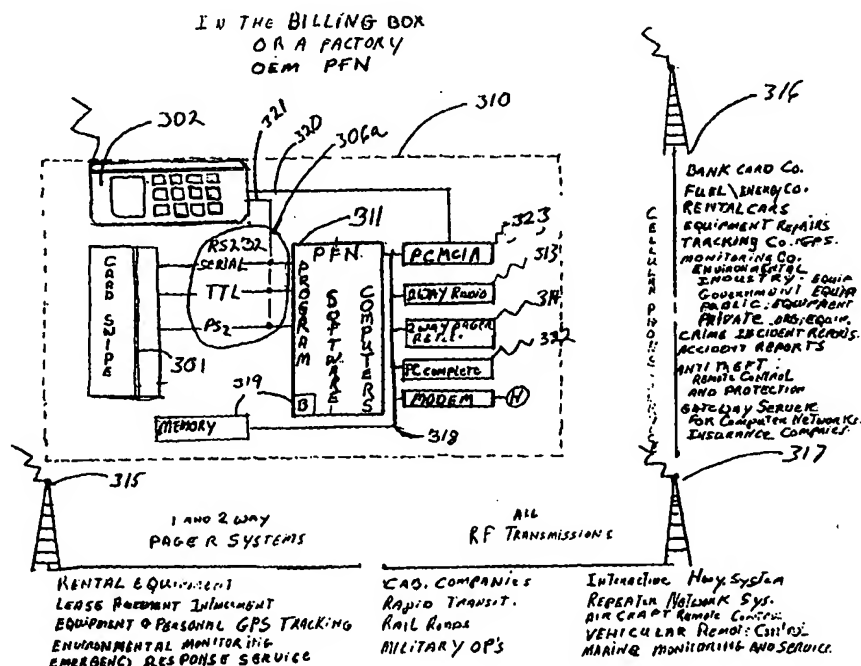 IN THE BILLING BOX
OR A FACTORY
OEM PFN
302
321
320
306a
310
316
311
323
313
314
322
RS232
SERIAL
TTL
PS2
CARD SWIPE
301
PFN
PROGRAM
SOFTWARE
COMPUTERS
B
PCMCIA
2WAY RADIO
2WAY PAGER
PC COMPLETE
MODEM
319
MEMORY
318
CELLULAR PHONE
BANK CARD CO.
FUEL\ENERGY CO.
RENTAL CARS
EQUIPMENT REPAIRS
TRACKING CO. GPS.
MONITORING CO.
ENVIRONMENTAL
INDUSTRY: EQUIP
GOVERNMENT EQUIP
PUBLIC: EQUIPMENT
PRIVATE ORG: EQUIP.
CRIME INCIDENT REPORTS.
ACCIDENT REPORTS
ANTI THEFT:
REMOTE CONTROL
AND PROTECTION
GATEWAY SERVICE
FOR COMPUTER NETWORKS.
INSURANCE COMPANIES.
315
317
1 AND 2 WAY
PAGER SYSTEMS
ALL
RF TRANSMISSIONS
RENTAL EQUIPMENT
LEASE
EQUIPMENT & PERSONAL GPS TRACKING
ENVIRONMENTAL MONITORING
EMERGENCY RESPONSE SERVICE
CAB. COMPANIES
RAPID TRANSIT.
RAIL ROADS
MILITARY OP'S
INTERACTIVE HWY. SYSTEM
REPEATER NETWORK SYS.
AIR CRAFT REMOTE CONTROL
VEHICULAR REMOTE CONTROL
MARINE MONITORING AND SERVICE.